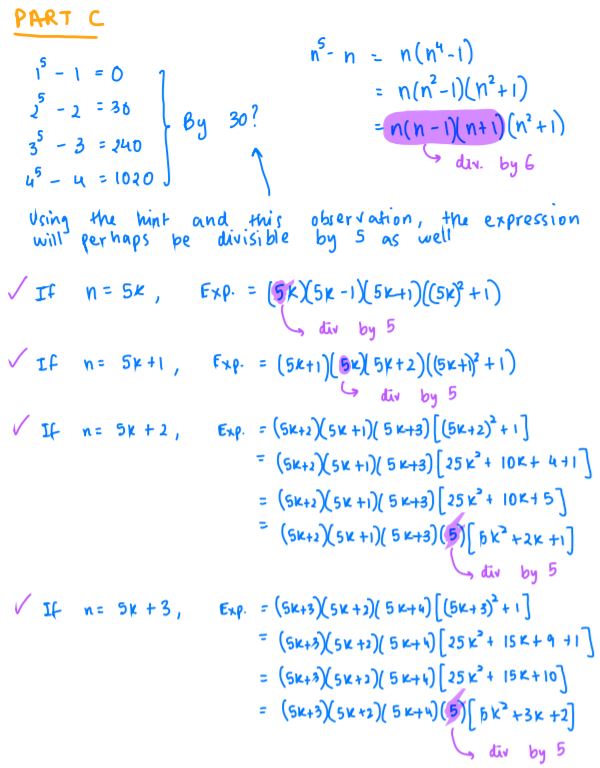 PART C
1⁵ - 1 = 0
2⁵ - 2 = 30
3⁵ - 3 = 240
4⁵ - 4 = 1020
By 30?
n⁵ - n = n(n⁴ - 1)
= n(n² - 1)(n² + 1)
= n(n - 1)(n + 1)(n² + 1)
div. by 6
Using the hint and this observation, the expression
will perhaps be divisible by 5 as well
✓ If n = 5k, Exp. = (5k)(5k - 1)(5k + 1)((5k)² + 1)
div by 5
✓ If n = 5k + 1, Exp. = (5k + 1)(5k)(5k + 2)((5k + 1)² + 1)
div by 5
✓ If n = 5k + 2, Exp. = (5k+2)(5k+1)(5k+3)[(5k+2)² + 1]
= (5k+2)(5k+1)(5k+3)[25k² + 10k + 4 + 1]
= (5k+2)(5k+1)(5k+3)[25k² + 10k + 5]
= (5k+2)(5k+1)(5k+3)(5)[5k² + 2k + 1]
div by 5
✓ If n = 5k + 3, Exp. = (5k+3)(5k+2)(5k+4)[(5k+3)² + 1]
= (5k+3)(5k+2)(5k+4)[25k² + 15k + 9 + 1]
= (5k+3)(5k+2)(5k+4)[25k² + 15k + 10]
= (5k+3)(5k+2)(5k+4)(5)[5k² + 3k + 2]
div by 5